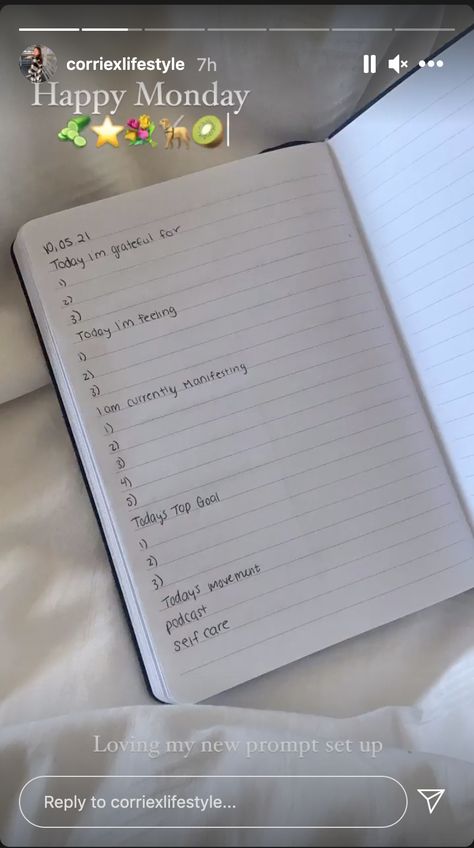 corriexlifestyle 7h
Happy Monday
10.05.21
Today im grateful for
1)
2)
3)
Today Im feeling
1)
2)
3)
I am currently Manifesting
1)
2)
3)
4)
5)
Todays Top Goal
1)
2)
3)
Todays movement
podcast
self care
Loving my new prompt set up
Reply to corriexlifestyle...